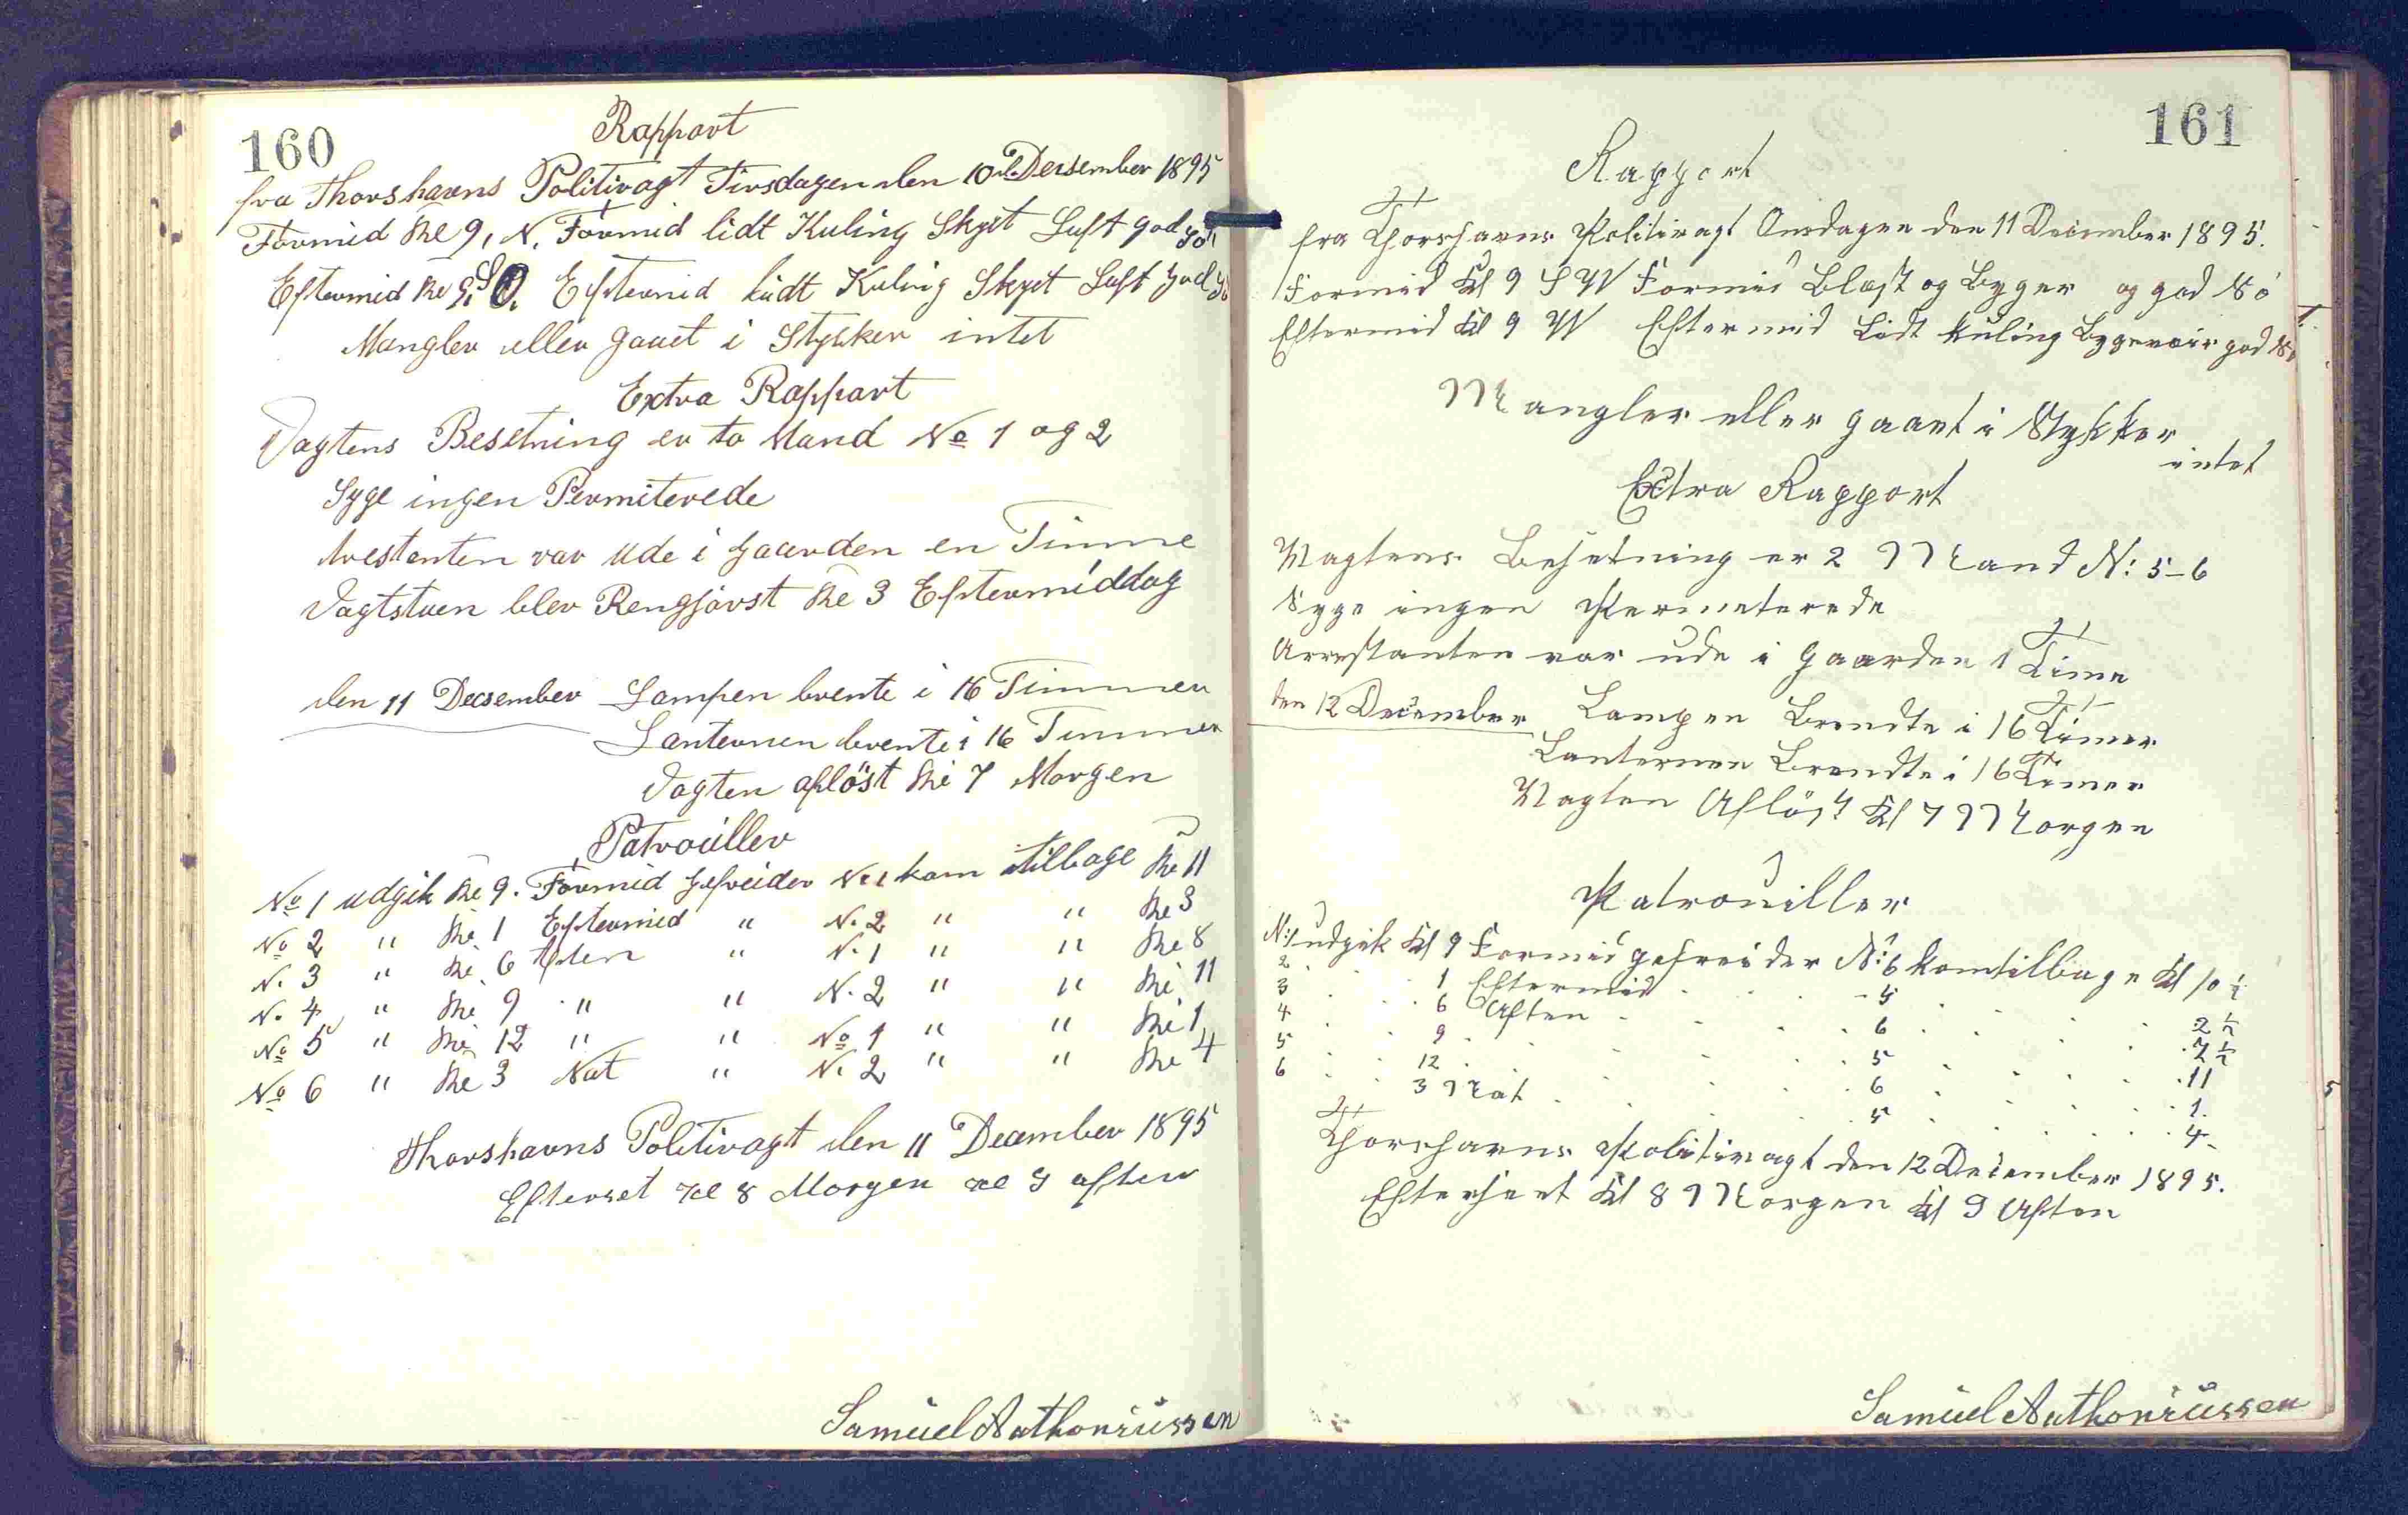 160
Rapport
fra Thorshavns Politivagt Tirsdagen den 10de Decsember 1895
Formid Kl 9, N. Formid lidt Kuling Skyet Luft god Sö
Eftermid Kl 9, S.O. Eftermid lidt Kuling Skyet Luft god Sö
Mangler eller gaaet i Stykker intet
Extra Rapport
Vagtens Besetning er to Mand No 1 og 2
Syge ingen Permiterede
Arestanten var ude i gaarden en Timme
Vagtstuen blev Rengjörst Kl 3 Eftermiddag
den 11 Decsember Lampen brente i 16 Timmer
Lanternen brente i 16 Timmer
Vagten aflöst Kl 7 Morgen
Patrouiller
No 1 udgik Kl 9. Formid gefreider No 1 kom tilbage Kl 11
No 2 " Kl 1 Eftermid " N. 2 " " Kl 3
N. 3 " Kl 6 Aften " N. 1 " " Kl 8
N. 4 " Kl 9 " " N. 2 " " Kl 11
No 5 " Kl 12 " " No 1 " " Kl 1
No 6 " Kl 3 Nat " N. 2 " " Kl 4
Thorshavns Politivagt den 11 December 1895
Efterset Kl 8 Morgen Kl 9 aften
Samuel Anthoniussen
161
Rapport
fra Thorshavns Politivagt Onsdagen den 11 December 1895.
Formid Kl 9 S W Formid Blæst og Byger og god Sö
Eftermid Kl 9 W Eftermid Lidt Kuling Bygevæir god Sö
Mangler eller gaaet i Stykker
intet
Extra Rapport
Vagtens Besetning er 2 Mand N: 5-6
Syge ingen Permeterede
Arrestanten var ude i Gaarden 1 Time
den 12 December Lampen Brendte i 16 Timer
Lanternen Brendte i 16 Timer
Vagten Aflöst Kl 7 Morgen
Patrouiller
N: 1 udgik Kl 9 Formid gefreider N: 6 kom tilbage Kl 10 1/2
2 . . 1 Eftermid . . - 5 . . . . 2 1/2
3 . . 6 Aften . . . 6 . . . . 7 1/2
4 . . 9 . . . . 5 . . . . 11
5 . . 12 . . . . 6 . . . . 1.
6 . . 3 Nat . . . 5 . . . . 4
Thorshavns Politivagt den 12 December 1895.
Efterseet Kl 8 Morgen Kl 9 Aften
Samuel Anthoniussen